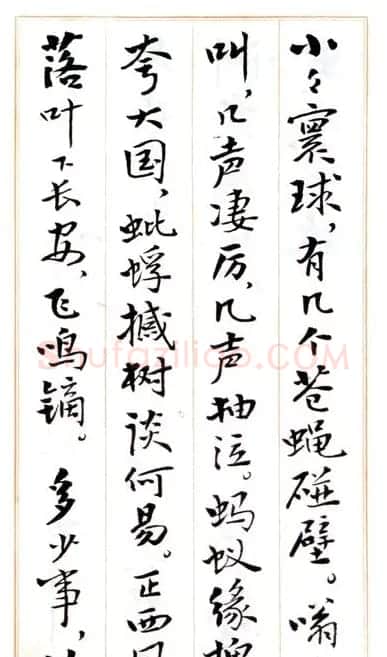 小々寰球,有几个苍蝇碰壁。嗡
叫,几声凄厉,几声抽泣。蚂蚁缘
夸大国,蚍蜉撼树谈何易。正西
落叶下长安,飞鸣镝。多少事,
Shufaziliao.com